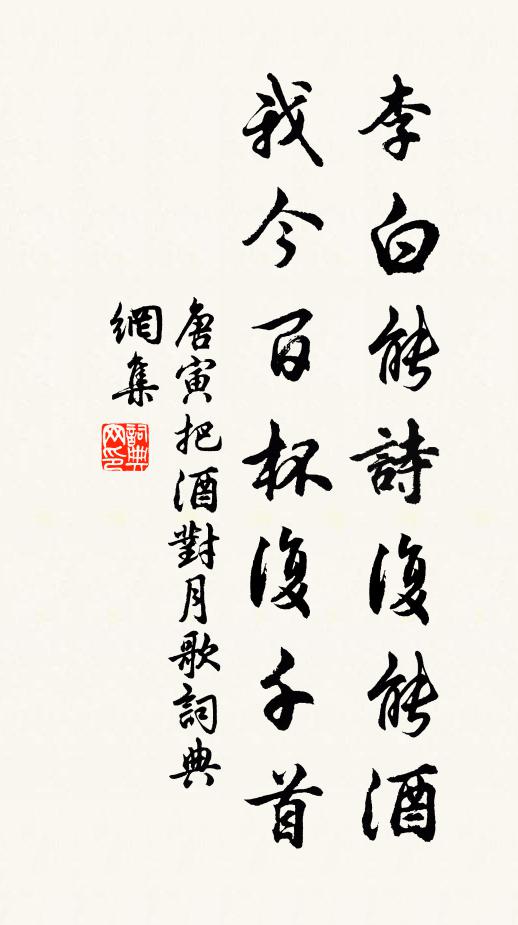 李白能詩復能酒
我今百杯復千首
唐寅把酒對月歌詞典
網集
詞典網印